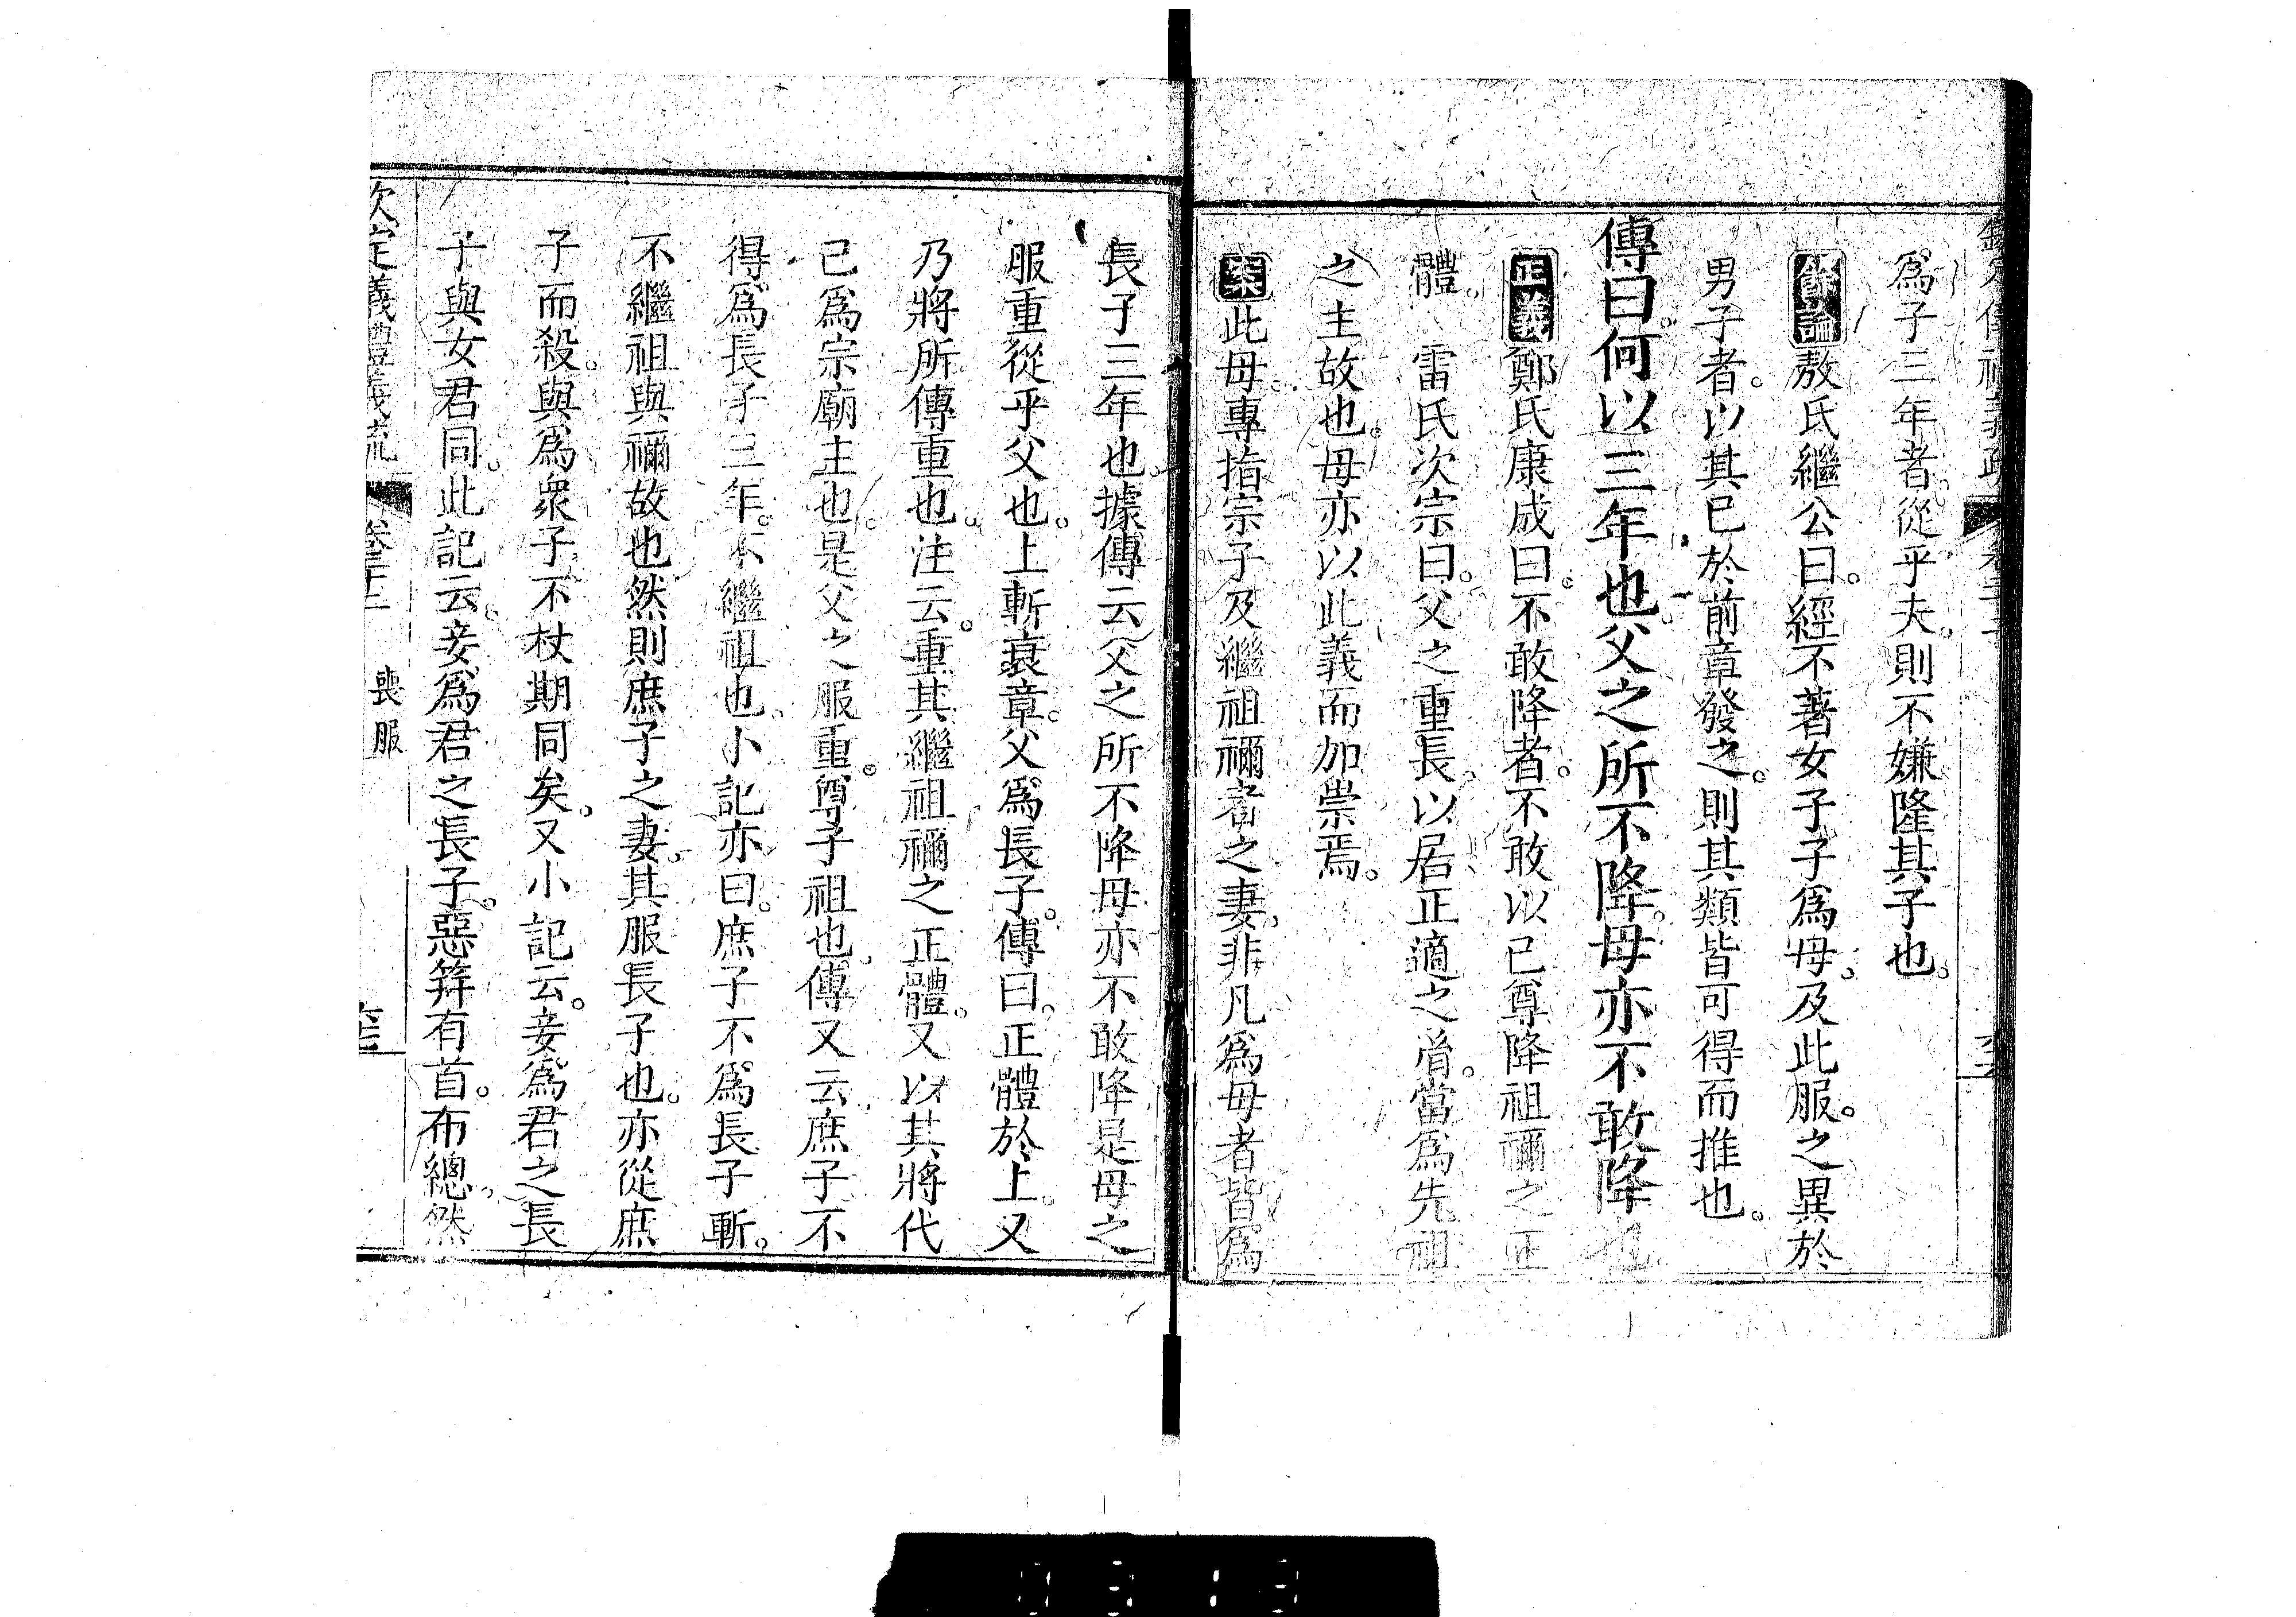 爲子三年者。從乎夫。則不嫌隆其子也。
餘論敖氏繼公曰。經不著女子子爲母。及此服。之異於
男子者。以其已於前章發之。則其類皆可得而推也。
傳曰。何以三年也。父之所不降。母亦不敢降也。
正義鄭氏康成曰。不敢降者。不敢以己尊降祖禰之正
體。 雷氏次宗曰。父之重長。以居正適之胤。當爲先祖
之主故也。母亦以此義而加崇焉。
案此母。專指宗子及繼祖禰者之妻。非凡爲母者皆爲
長子三年也。據傳云父之所不降母亦不敢降是母之
服重從乎父也。上斬衰章。父爲長子。傳曰。正體於上。又
乃將所傳重也。注云。重其繼祖禰之正體。又以其將代
己爲宗廟主也。是父之服重。尊子祖也。傳又云庶子不
得爲長子三年。不繼祖也。小記亦曰。庶子不爲長子斬。
不繼祖與禰故也然則庶子之妻。其服長子也。亦從庶
子而殺。與爲衆子不杖期同矣。又小記云。妾爲君之長
子與女君同。此記云。妾爲君之長子。惡筓有首。布總。然
欽定義禮義疏 卷二十二 喪服